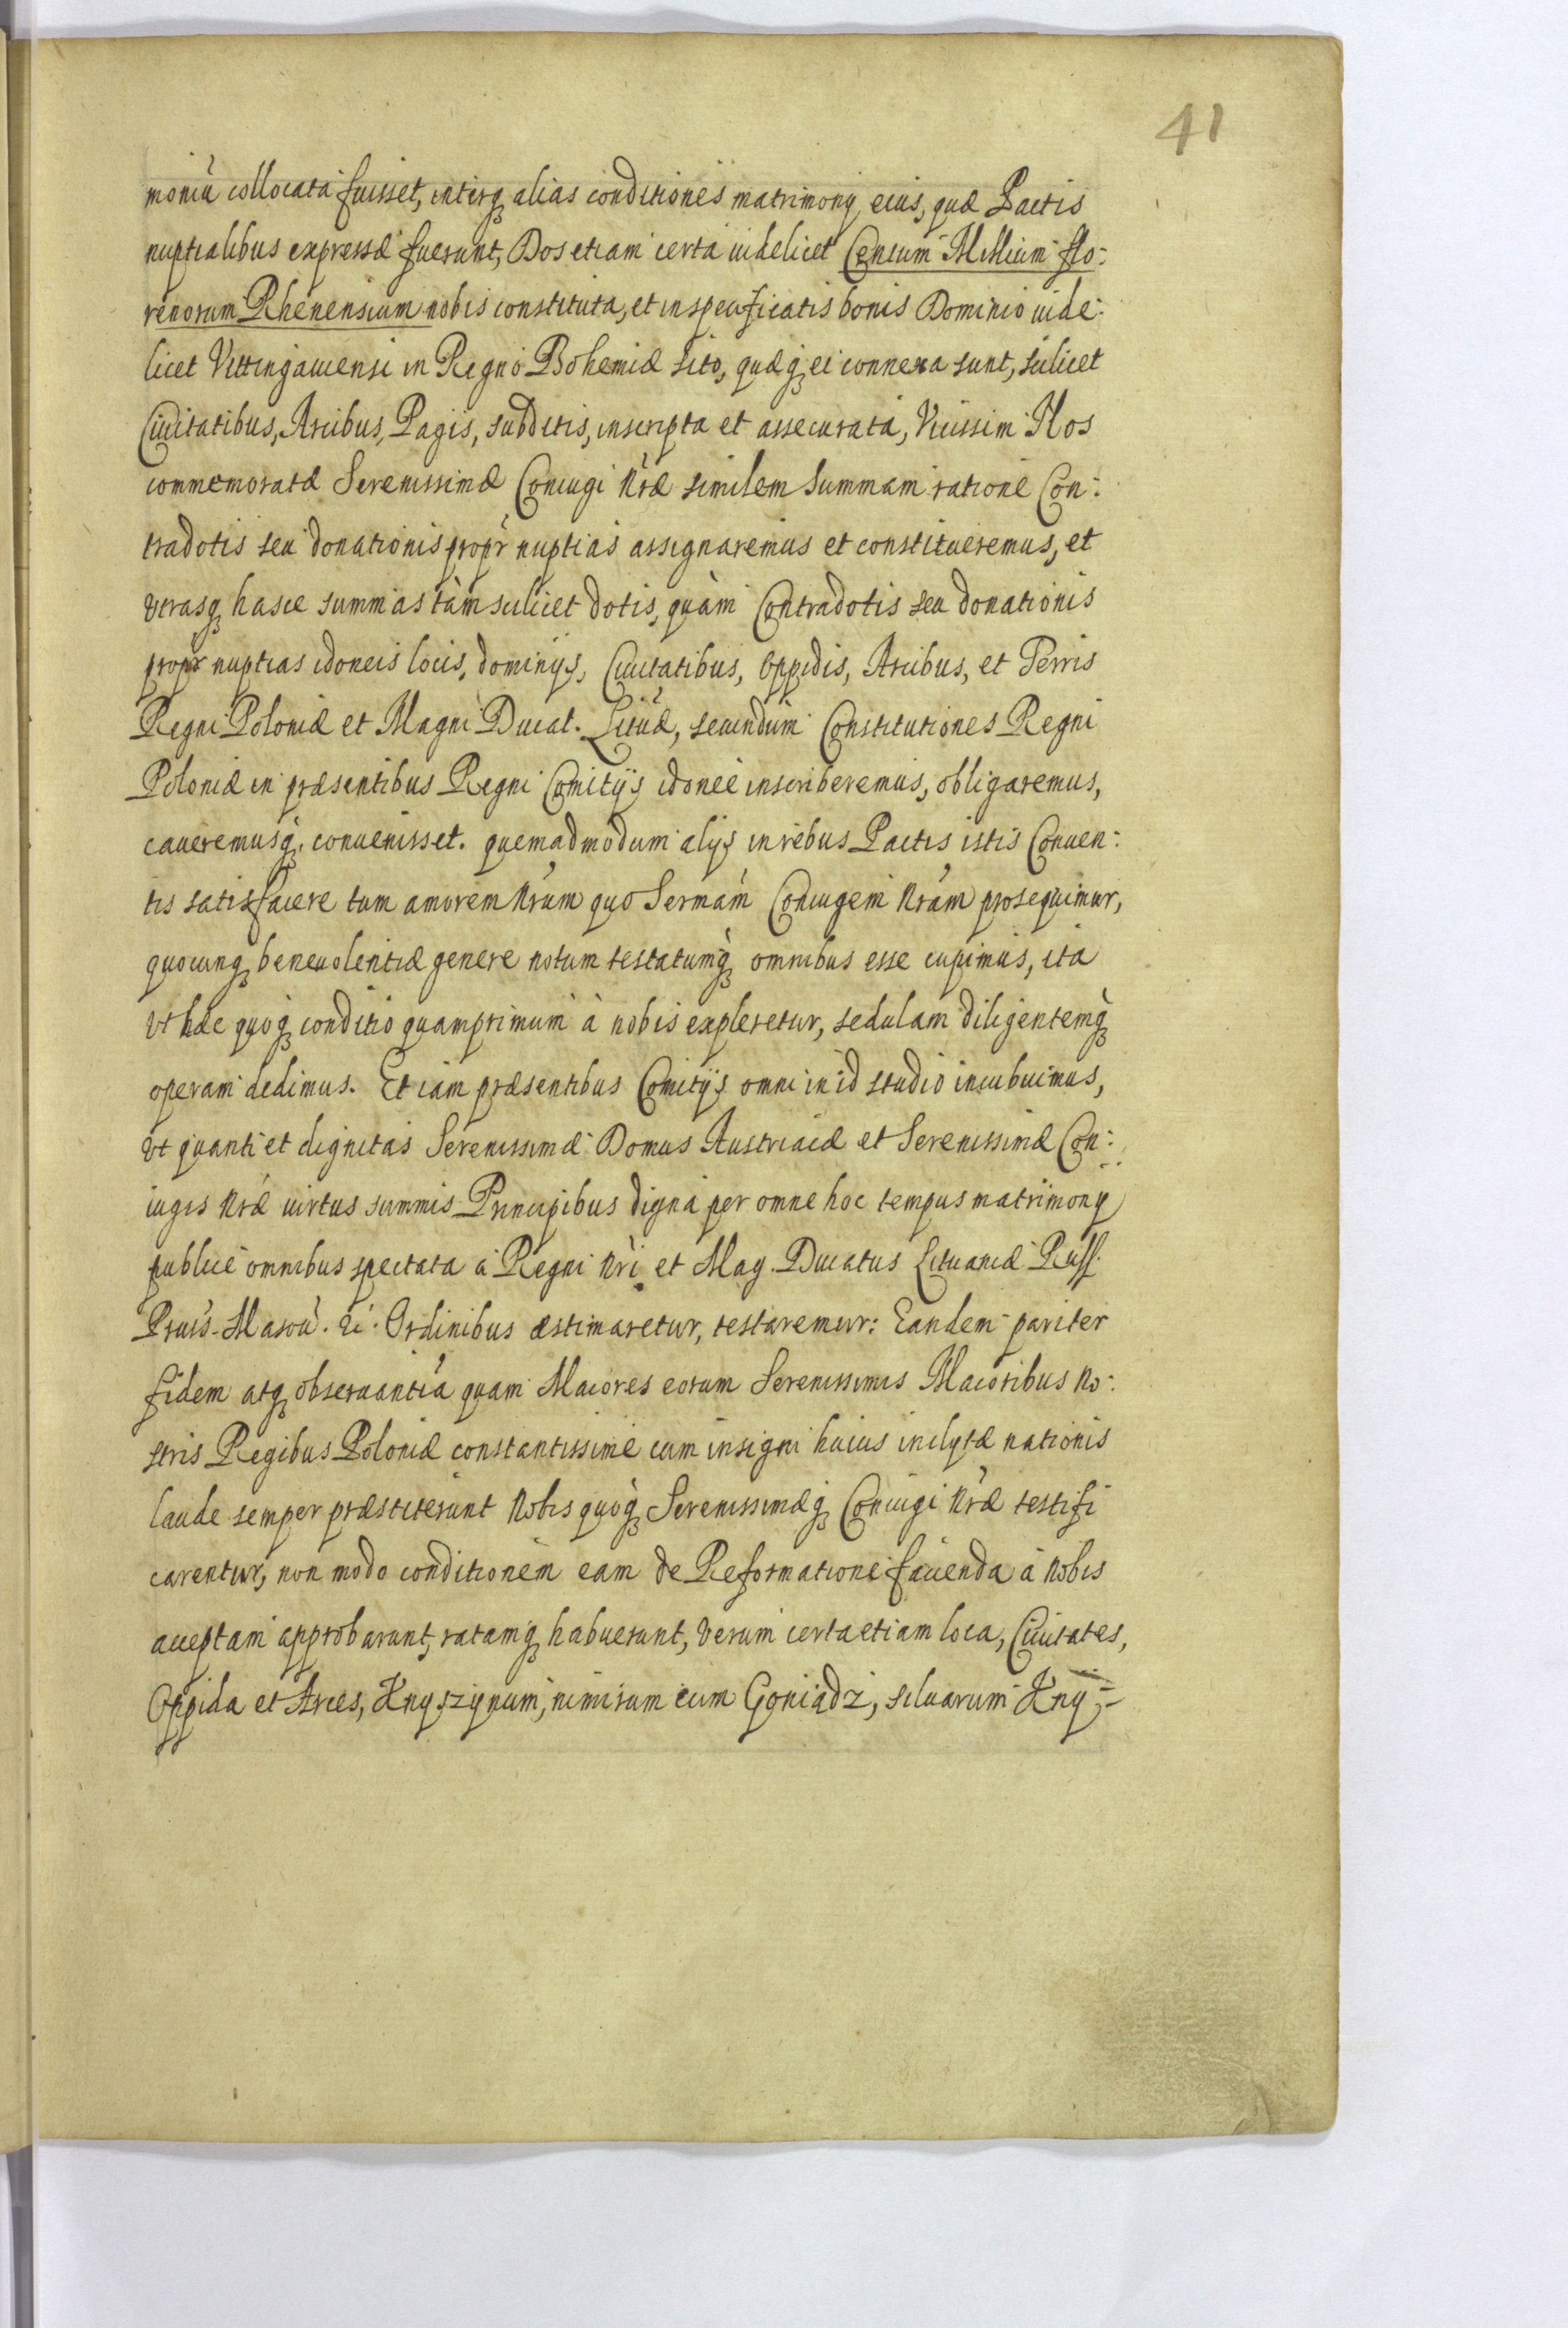 41
moniũ collocata fuisset, interq₃ alias conditiones matrimonij eius, quæ Pactis
nuptialibus expressæ fuerunt, Dos etiam certa uidelicet Centum Millium flo:
renorum Rhenensium nobis constituta, et in specificatis bonis Dominio uide:
licet Vittingauiensi in Regno Bohemiæ sito, quæq₃ ei connexa sunt, scilicet
Ciuitatibus, Arcibus, Pagis, subditis, inscripta et assecurata, Vicissim Nos
commemoratæ Serenissimæ Coniugi Nr̃æ similem summam ratione Con:
tradotis seu donationis propr̃ nuptias assignaremus et constitueremus, et
vtrasq₃ hasce summas tàm scilicet dotis, quàm Contradotis seu donationis
propr̃ nuptias idoneis locis, dominijs, Ciuitatibus, Oppidis, Arcibus, et Terris
Regni Poloniæ et Magni Ducat. Lituæ, secundum Constitutiones Regni
Poloniæ in præsentibus Regni Comitijs idoneè inscriberemus, obligaremus,
caueremusq₃. conuenisset. quemadmodum alijs in rebus Pactis istis Conuen:
tis satisfacere tum amorem Nr̃um quo Sermam̃ Coniugem Nr̃am prosequimur,
quocunq₃ beneuolentiæ genere notum testatumq₃ omnibus esse cupimus, ita
vt hæc quoq₃ conditio quamprimum à nobis expleretur, sedulam diligentemq₃
operam dedimus. Et iam præsentibus Comitijs omni in id studio incubuimus,
vt quanti et dignitas Serenissimæ Domus Austriacæ et Serenissimæ Con:
iugis Nr̃æ uirtus summis Principibus digna per omne hoc tempus matrimonij
publicè omnibus spectata à Regni Nr̃i et Mag. Ducatus Lituaniæ Russ.
Pruss. Masou. &c. Ordinibus æstimaretur, testaremur: Eandem pariter
fidem atq₃ obseruantiã quam Maiores eorum Serenissimis Maioribus No:
stris Regibus Poloniæ constantissimè cum insigni huius inclytæ nationis
laude semper præstiterunt Nobis quoq₃ Serenissimæq₃ Coniugi Nr̃æ testifi
carentur, non modo conditionem eam de Reformatione facienda à Nobis
acceptam approbarunt, ratamq₃ habuerunt, verum certa etiam loca, Ciuitates,
Oppida et Arces, Knyszynum, nimirum cum Goniądz, siluarum Kny=